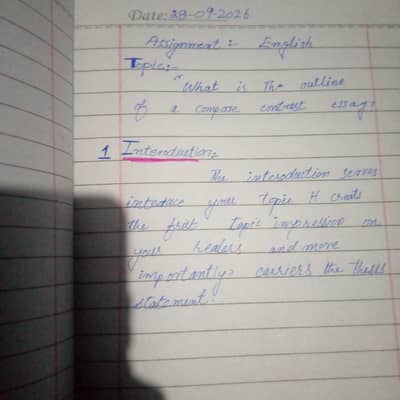 Date: 28-09-2026
Assignment :- English
Topic:-
"What is The outline
of a compare contrast essay?
1 Interoduction,
The interoduction serves
inteoduce your topic It creats
the first Topic impression on
your Readers and more
importantly, carriers the Thesis
statement.